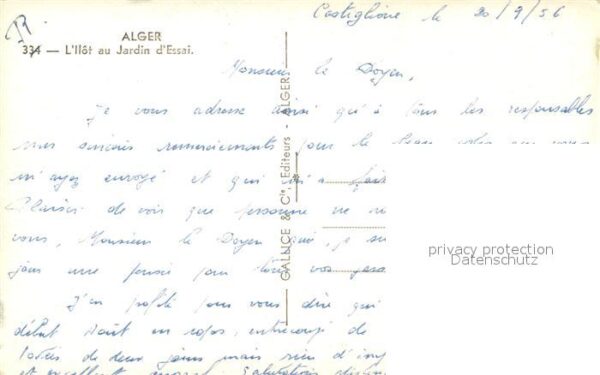 ALGER
334 — L'Ilôt au Jardin d'Essai.
Castiglione le 20/9/56
Monsieur le Doyen,
Je vous adresse ainsi qu'à tous les responsables
mes sincères remerciements pour le
m'ayez envoyé et qui m'a fait
Plaisir de voir que personne ne
vous, Monsieur le Doyen qui, je
jours une pensée pour tous vos
J'en profite pour vous dire qui
début Août en repos, entrecoupé de
de deux jours mais rien d'
et excellent moral. Salutations
GALNICE & Cie, Editeurs - ALGER
privacy protection
Datenschutz